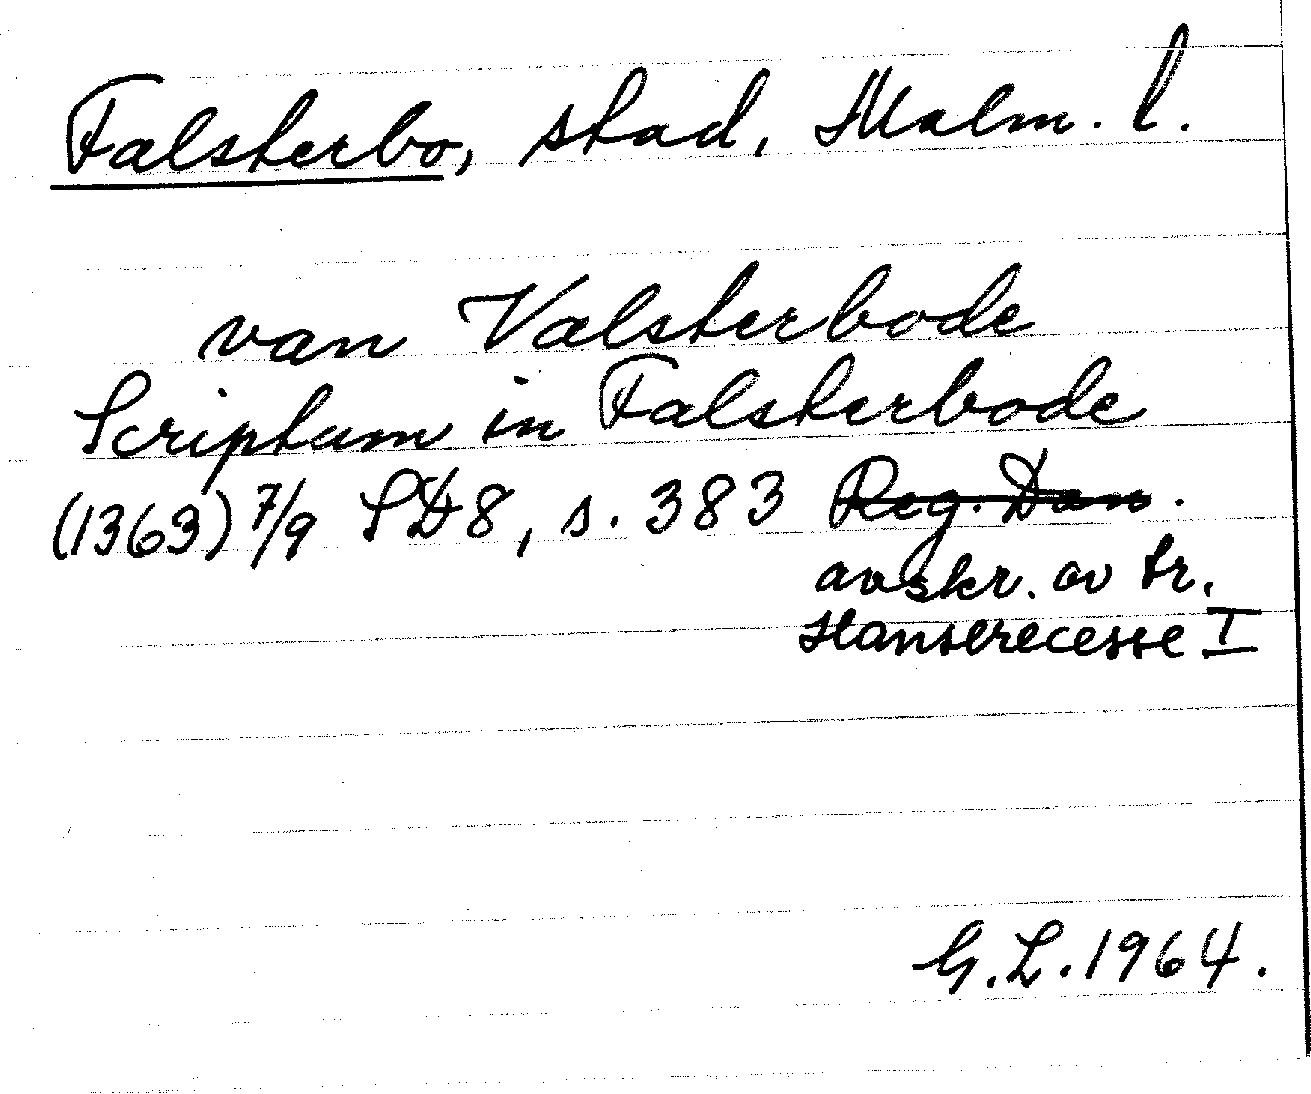 Falsterbo, stad, Malm. l.
van Valsterbode
Scriptum in Falsterbode
(1363) 7/9 SD8, s. 383 Reg. Dan.
avskr. av tr.
Hanserecesse I
G.L. 1964.